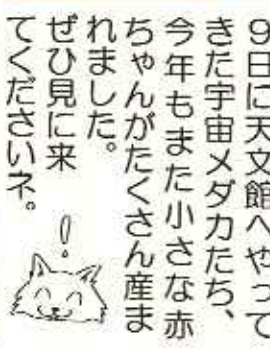 9日に天文館へやって
きた宇宙メダカたち、
今年もまた小さな赤
ちゃんがたくさん産ま
れました。
ぜひ見に来
てくださいネ。
!